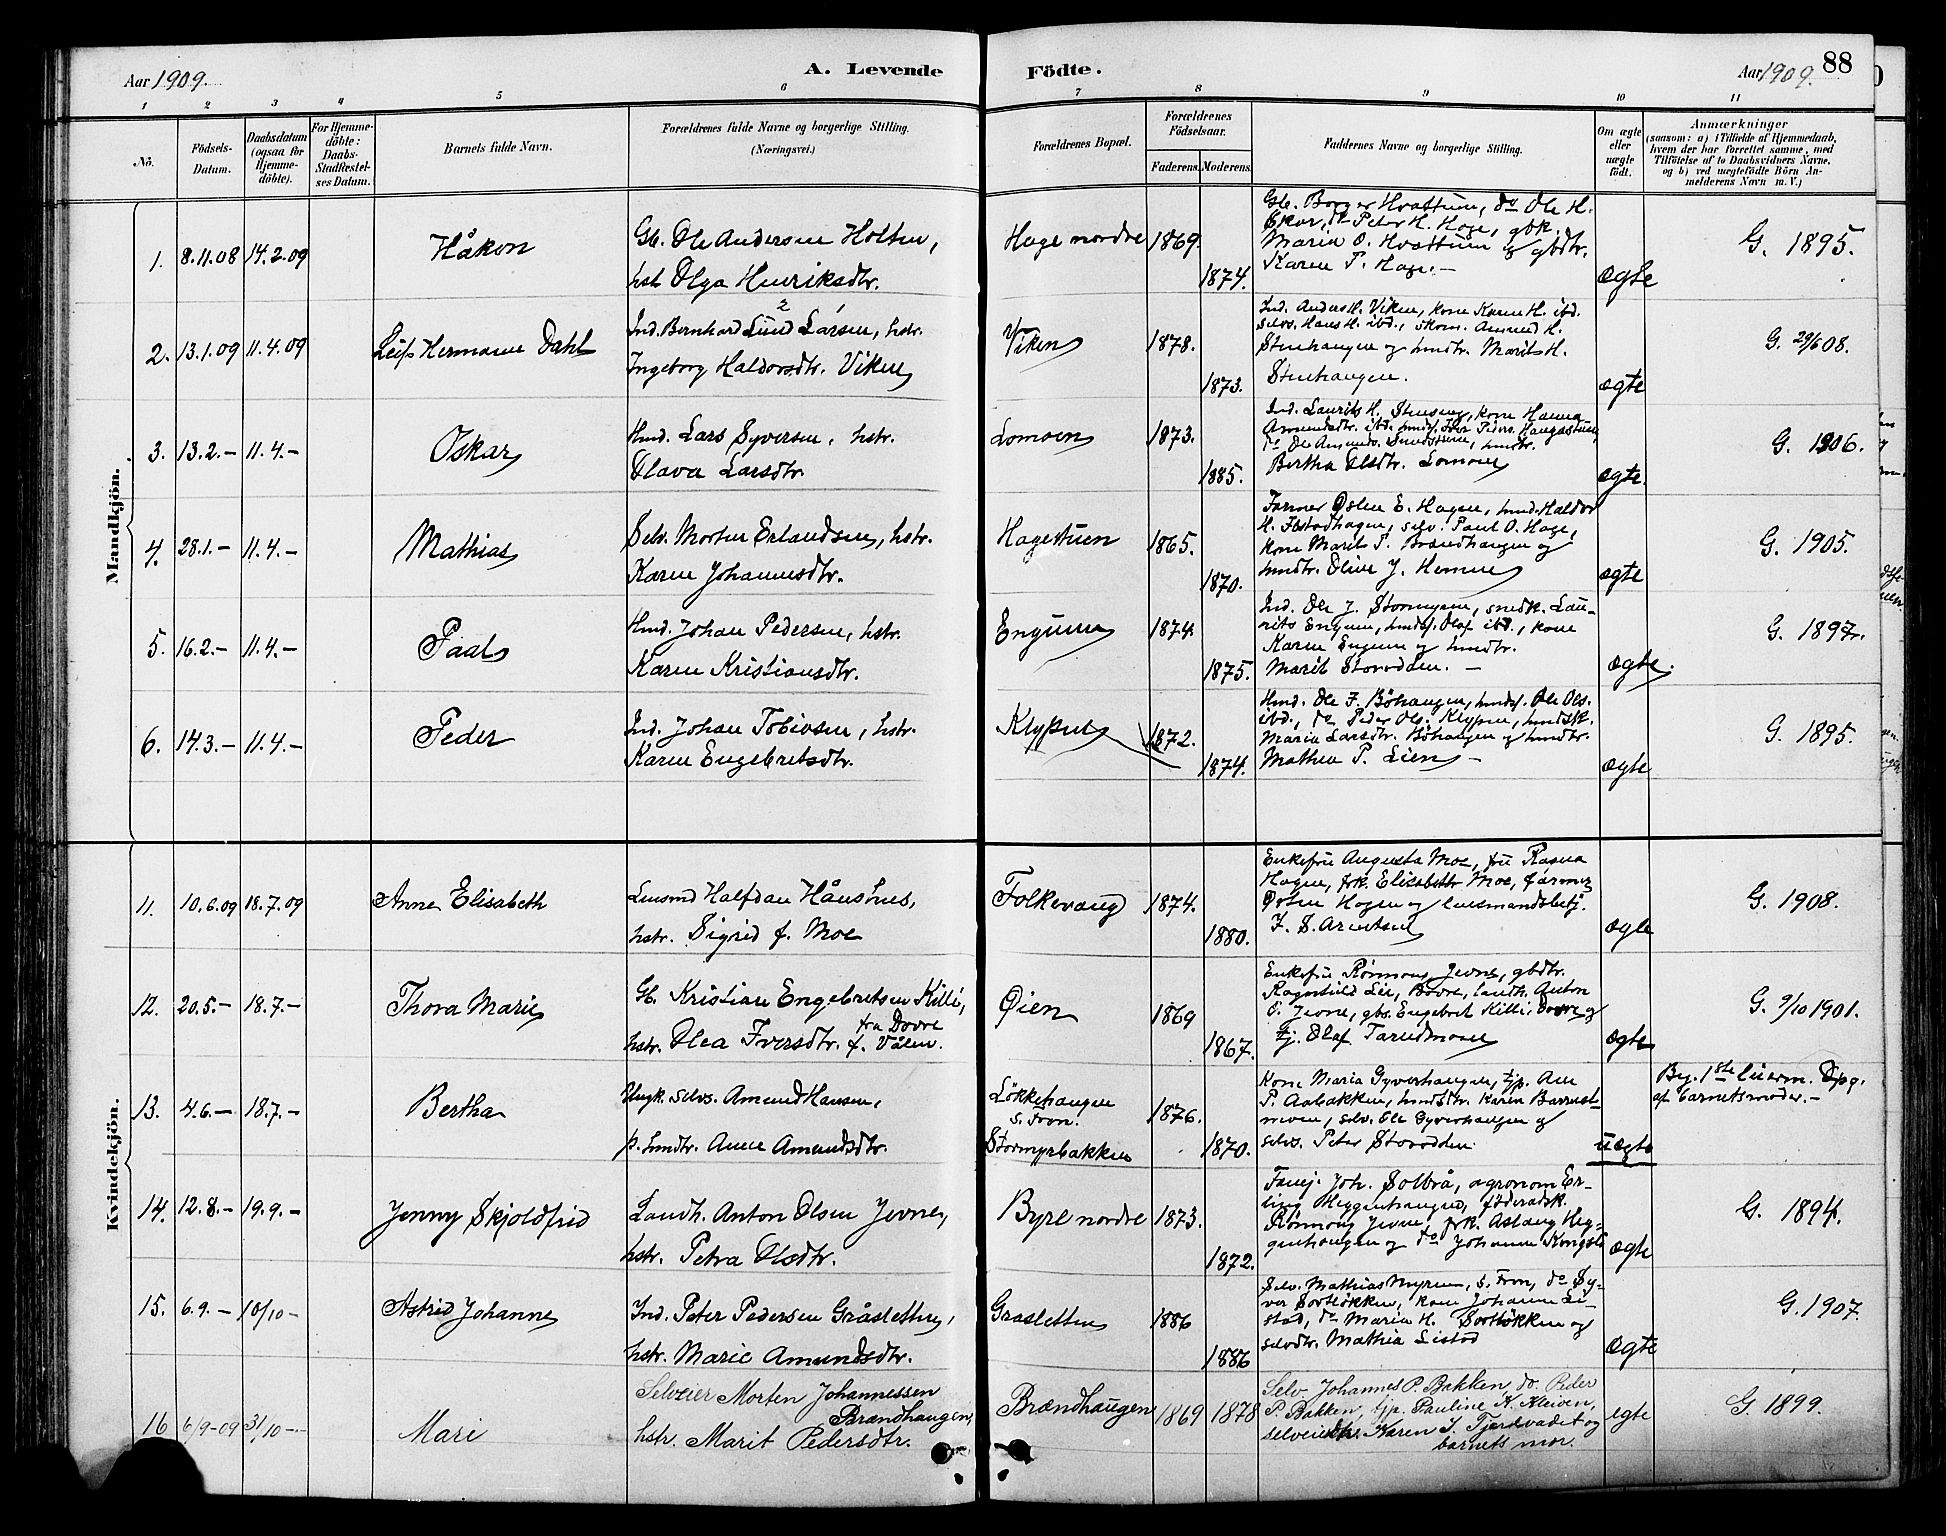 88
Aar 1909.
A. Levende
Födte.
Aar 1909.
1 2 3 4 5 6 7 8 9 10 11
No.
Födsels-
Datum.
Daabsdatum
(ogsaa for
Hjemme-
döbte).
For Hjemme-
döbte:
Daabs-
Stadfæstel-
ses Datum.
Barnets fulde Navn.
Forældrenes fulde Navne og borgerlige Stilling.
(Næringsvei.)
Forældrenes Bopæl.
Forældrenes
Födselsaar.
Faderens.
Moderens.
Faddernes Navne og borgerlige Stilling.
Om ægte
eller
uægte
födt.
Anmærkninger
(saasom: a) i Tilfælde af Hjemmedaab,
hvem der har forrettet samme, med
Tilföielse af to Daabsvidners Navne,
og b) ved uægtefödte Börn An-
melderens Navn m. V.)
Mandkjön.
1. 8.11.08 14.2.09
Håkon
Gb. Ole Andersen Holten,
hst. Olga Henriksdtr.
Hage nordre
1869.
1874.
Gb. Borger Hvattum, do Ole H.
Skar, do Peter H. Hage, gbk.
Maren O. Hvattum og gbdtr.
Karen P. Hage. —
ægte
G. 1895.
2. 13.1.09 11.4.09
Leif Hermann Dahl
Ind. Bernhard Lund Larsen, hstr.
Ingeborg Haldorsdtr. Viken
Viken
1878.
1873.
Ind. Anders H. Viken, kone Karen H. ibd.
selvs. Hans H. ibd., skom. Amund H.
Stenhaugen og hmdtr. Marit H.
Stenhaugen.
ægte
G. 29/6 08.
3. 13.2.— 11.4.—
Oskar
Hmd. Lars Syversen, hstr.
Olava Larsdtr.
Lomoen
1873.
1885.
Ind. Laurits H. Stenseng, kone Hanna
Bertha Olsdtr. Lomoen
ægte.
G. 1906.
4. 28.1.— 11.4.—
Mathias
Selv. Morten Erlandsen, hstr.
Karen Johannesdtr.
Hagestuen
1865.
1870.
Farmer Østen E. Hagen, hmd. Haldor
H. Flstadhagen, selv. Paul O. Hage,
kone Marit P. Brændhaugen og
hmdtr. Olive J. Hemme
ægte
G. 1905.
5. 16.2.— 11.4.—
Paal
Hmd. Johan Pedersen, hstr.
Karen Kristiansdtr.
Engum
1874.
1875.
Ind. Ole J. Stormyren, snedk. Lau-
rits Engum, hmdsf. Olaf ibd., kone
Karen Engum og hmdtr.
Marit Storødden. —
ægte.
G. 1897.
6. 14.3.— 11.4.—
Peder
Ind. Johan Tobiasen, hstr.
Karen Engebretsdtr.
Klypen
1872.
1874.
Hmd. Ole F. Böhaugen, hmdsf. Ole Ols.
ibd., do Peder Ols. Klypen, hmdsk.
Maria Larsdtr. Böhaugen og hmdtr.
Mathea P. Lien —
ægte
G. 1895.
Kvindekjön.
11. 10.6.09 18.7.09
Anne Elisabeth
Lensmd Halfdan Håushus,
hstr. Sigrid f. Moe
Folkevang
1874.
1880.
Enkefru Augusta Moe, fru Ragna
Hagen, frk. Elisabeth Moe, farmer
Østen Hagen og lensmandsbetj.
F. S. Arntsen
ægte
G. 1908.
12. 20.5.— 18.7.—
Thora Marie
Gb. Kristian Engebretsen Killi,
fra Dovre
hstr. Olea Iversdtr. f. Vålen.
Øien
1869
1867.
Enkefru Rønnoug Jevne, gbdtr.
Ragnhild Lie, Dovre, landh. Anton
O. Jevne, gbs. Engebret Killi, Dovre og
tj. Olaf Tarudmoen
ægte
G. 9/10 1901.
13. 4.6.— 18.7.—
Bertha
Ungk. selvs. Amund Hansen,
p. hmdtr. Anne Amundsdtr.
Løkkehaugen
s. Fron.
Stormyrbakken
1876.
1870.
Kone Maria Gyverhaugen, tjp. Ane
P. Aabakken, hmdsdtr. Karen Barrust-
moen, selv. Ole Gyverhaugen og
selvs. Peter Storødden.
uægte
Beg. 1ste leierm. Opg.
af barnets moder. —
14. 12.8.— 19.9.—
Jenny Skjoldfrid
Landh. Anton Olsen Jevne,
hstr. Petra Olsdtr.
Byre nordre
1873.
1872.
Fanej. Joh. Solbrå, agronom Er-
ling Heggenhaugen, føderådsk.
Rønnoug Jevne, frk. Aslaug Heg-
genhaugen og do Johanne Kongsli
ægte
G. 1894.
15. 6.9.— 10/10—
Astrid Johanne
Ind. Peter Pedersen Gråsletten,
hstr. Marie Amundsdtr.
Grasletten
1886
1886
Selv. Mathias Myren, s. Fron, do Sy-
ver Sorlløkken, kone Johanne Li-
stad, do Maria H. Sorlløkken og
selvdtr. Mathia Listad
ægte
G. 1907.
16 6/9-09 31/10—
Mari
Selveier Morten Johannessen
Brændhaugen,
hstr. Marit Pedersdtr.
Brændhaugen
1869 1878
Selv. Johannes P. Bakken, do. Peder
P. Bakken, tjp. Pauline K. Kleiven,
selveierdtr. Karen I. Tjordvadet og
barnets mor.
egte
G. 1899.